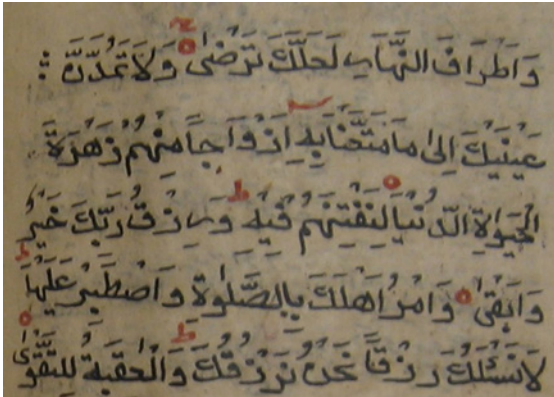 وَاَطْرَافَ النَّهَارِ لَعَلَّكَ تَرْضٰى وَلَا تَمُدَّنَّ
عَيْنَيْكَ اِلٰى مَا مَتَّعْنَا بِهٖ اَزْوَاجًا مِنْهُمْ زَهْرَةَ
الْحَيٰوةِ الدُّنْيَا لِنَفْتِنَهُمْ فِيْهِ وَرِزْقُ رَبِّكَ خَيْرٌ
وَاَبْقٰى وَاْمُرْ اَهْلَكَ بِالصَّلٰوةِ وَاصْطَبِرْ عَلَيْهَا
لَا نَسْئَلُكَ رِزْقًا نَحْنُ نَرْزُقُكَ وَالْعٰقِبَةُ لِلتَّقْوٰى